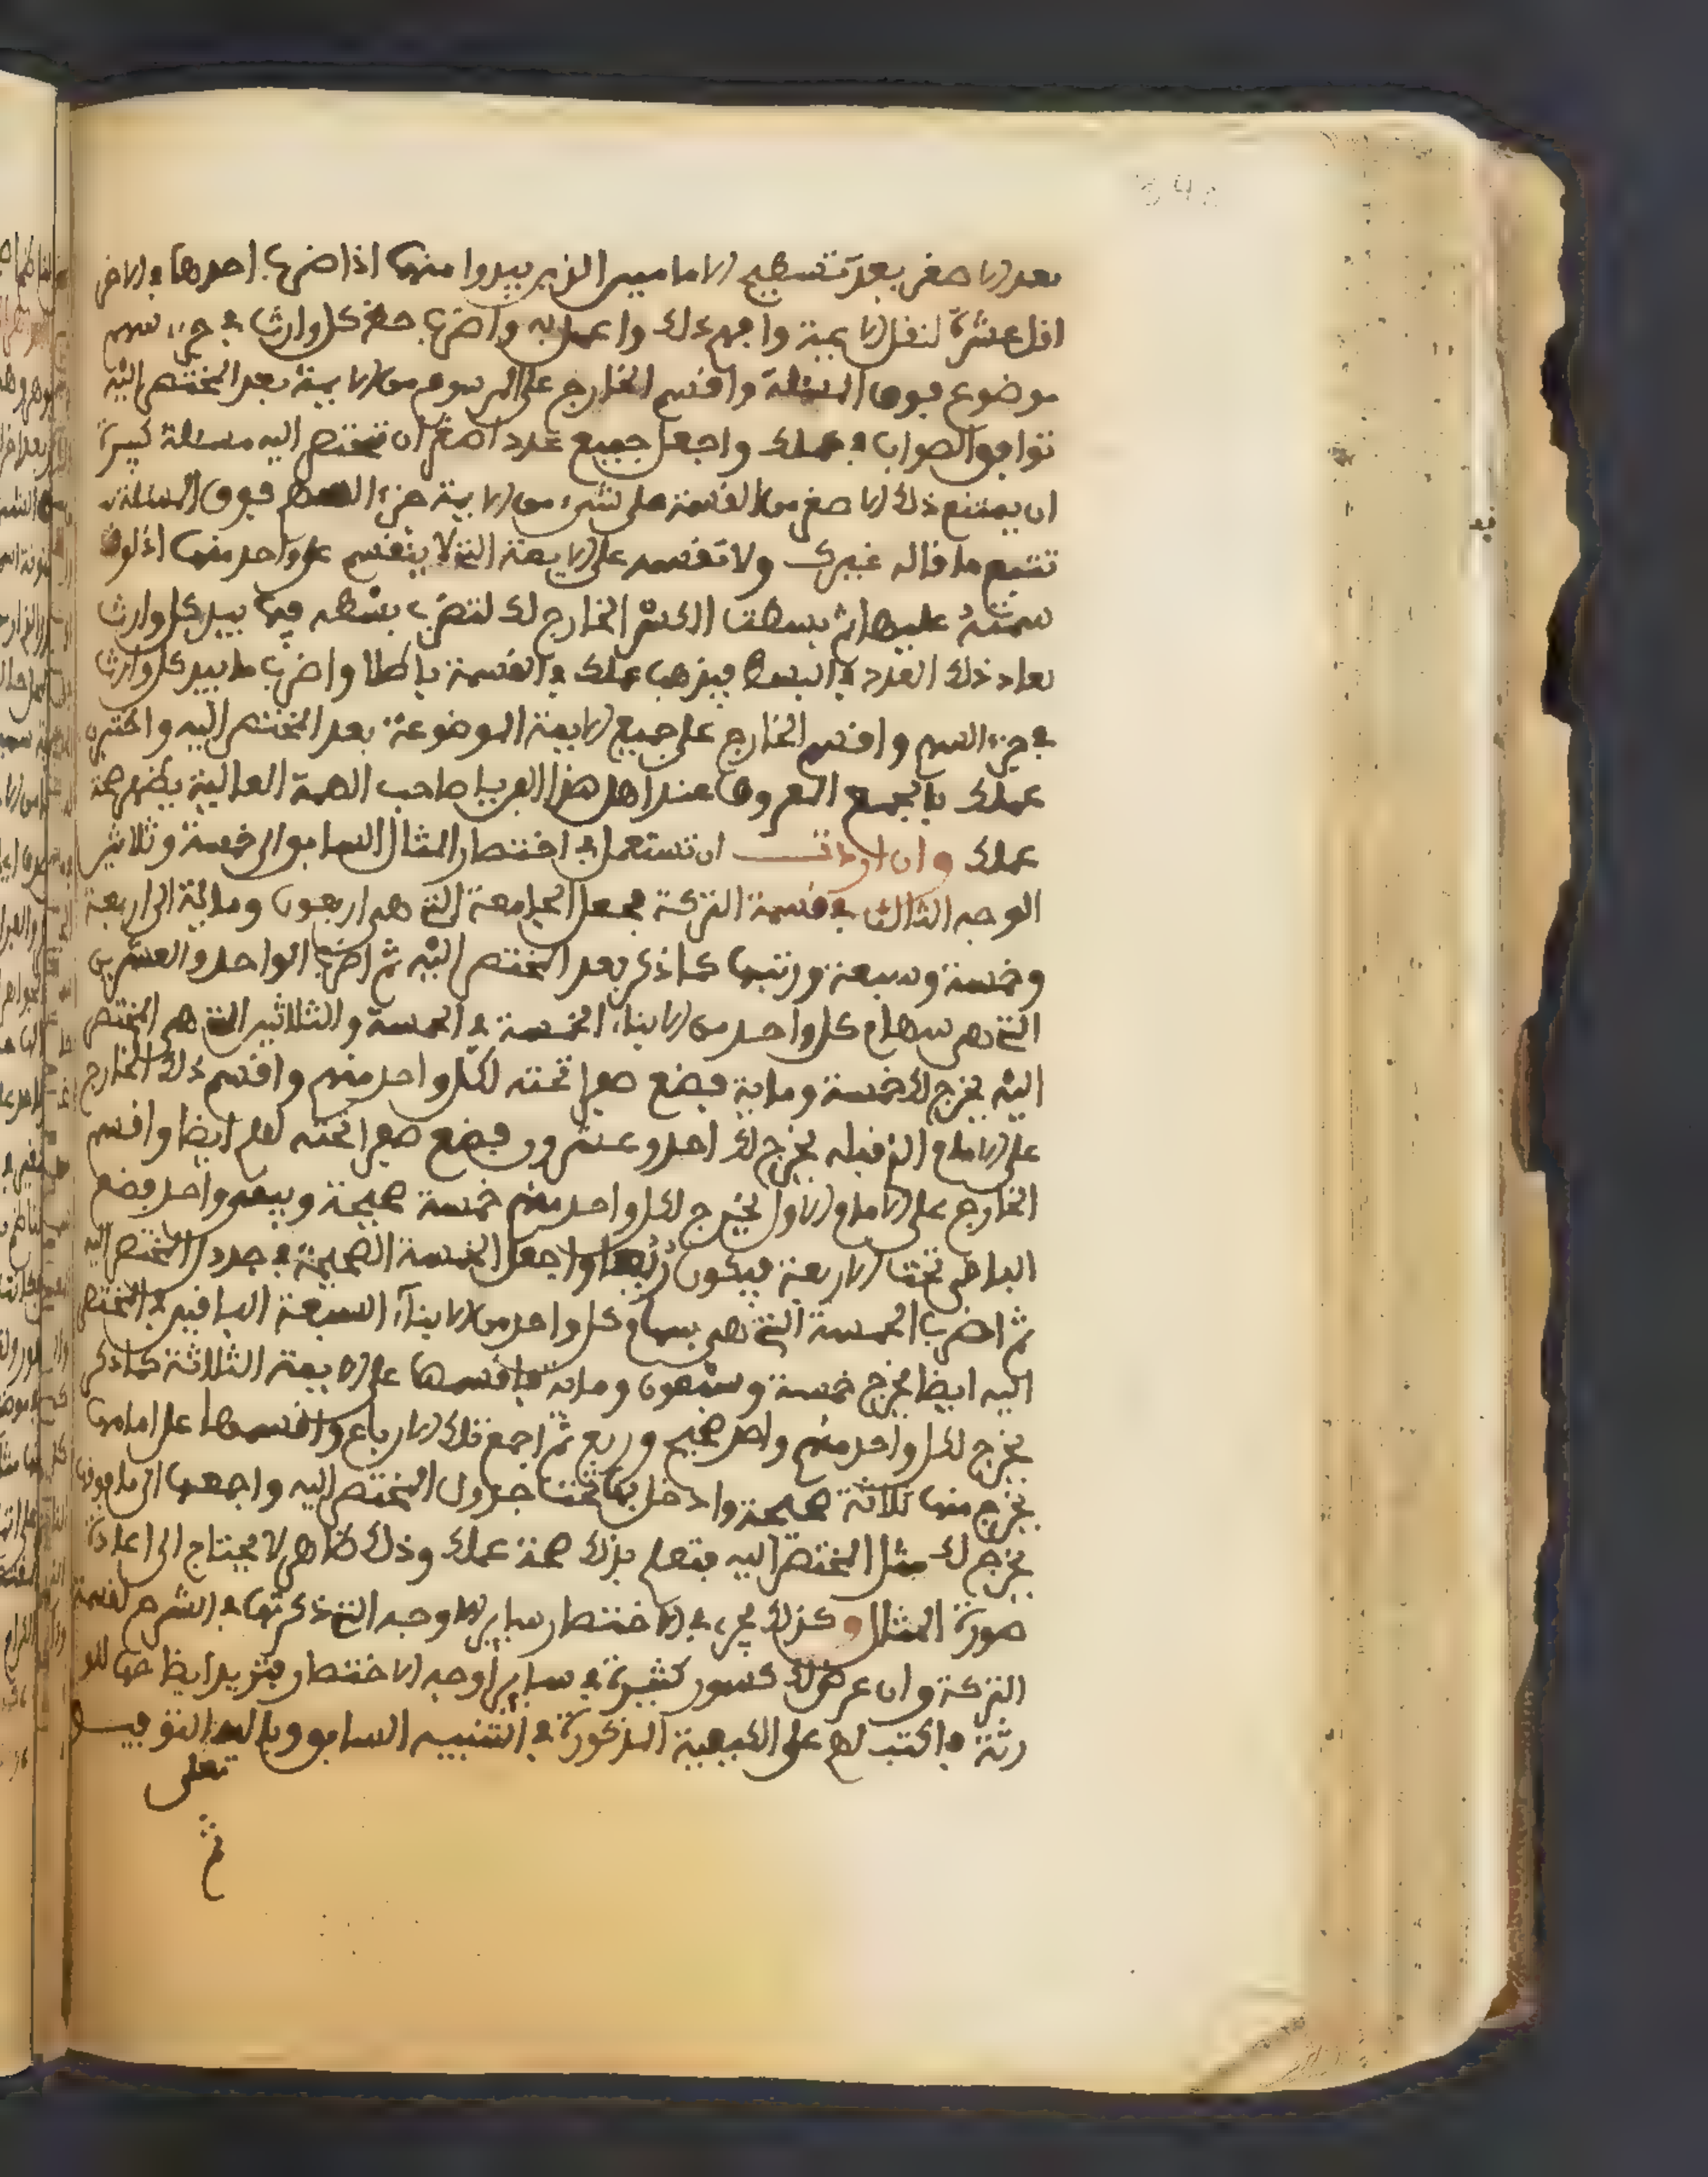 بعد الاصغر بعد تسطيح الامامين الذين يبدوا منها اذا ضرب احدها في الاخر
اقل عشرة لنقل الايمة وافهم ذلك واعمل به واضرب حظ كل وارث في جزء سهم
موضوع فوق المسئلة واقسم الخارج على المرسوم من الايمة بعد المختصر اليه
توافق الصواب في عملك واجعل جميع عدد اصغر ان تختصر اليه مسئلة كبيرة
ان يمتنع ذلك الاصغر من القسمة على شيء من الايمة جزء السهم فوق المسئلة
تتبع ما قاله غيرك ولا تقسمه على الايمة التي لا ينقسم على واحد منها اذ لو
سمته عليها ثم بسطت الكسر الخارج لك لتضرب بسطه فيما بيد كل وارث
لعاد ذلك العدد في البسط فيذهب عملك في القسمة باطلا واضرب ما بيد كل وارث
في جزء السهم واقسم الخارج على جميع الايمة الموضوعة بعد المختصر اليه واختبر
عملك بالجمع المعروف عند اهل هذا الفن يا صاحب الهمة العالية يظهر صحة
عملك وان اردت ان تستعمل في اختصار المثال السابق الى خمسة وثلاثين
الوجه الثالث في قسمة التركة فحل الجامعة التي هي اربعون وماية الى اربعة
وخمسة وسبعة ورتبها كما ذكر بعد المختصر اليه ثم اضرب الواحد والعشرين
التي هي سهام كل واحد من الابناء الخمسة في الخمسة والثلاثين التي هي المختصر
اليه يخرج لك خمسة وماية فضع صفرا تحته لكل واحد منهم واقسم ذلك الخارج
على الامام الذي قبله يخرج لك احد وعشرون فضع صفرا تحته لهم ايضا واقسم
الخارج على الامام الاول يخرج لكل واحد منهم خمسة صحيحة ويبقى واحد فضع
الباقي تحت الاربعة فيكون رُبُعا واجعل الخمسة الصحيحة في جدول المختصر اليه
ثم اضرب الخمسة التي هي سهام كل واحد من الابناء السبعة الباقين في المختصر
اليه ايضا يخرج خمسة وسبعون وماية فاقسمها على الايمة الثلاثة كما ذكر
يخرج لكل واحد منهم واحد صحيح وربع ثم اجمع تلك الارباع واقسمها على امامها
يخرج منها ثلاثة صحيحة وادخل بها تحت جدول المختصر اليه واجمعها الى ما فوقها
يخرج لك مثل المختصر اليه فتعلم بذلك صحة عملك وذلك ظاهر لا يحتاج الى اعادة
صورة المثال وكذلك يجري في الاختصار ساير الاوجه التي ذكرتها في الشرح لقسمة
التركة وان عرض لك كسور كثيرة في ساير اوجه الاختصار فتزيد ايضا حها للو
رثة فاكتب لهم على الكيفية المذكورة في التنبيه السابق وبالله التوفيق
تعلى
ثم